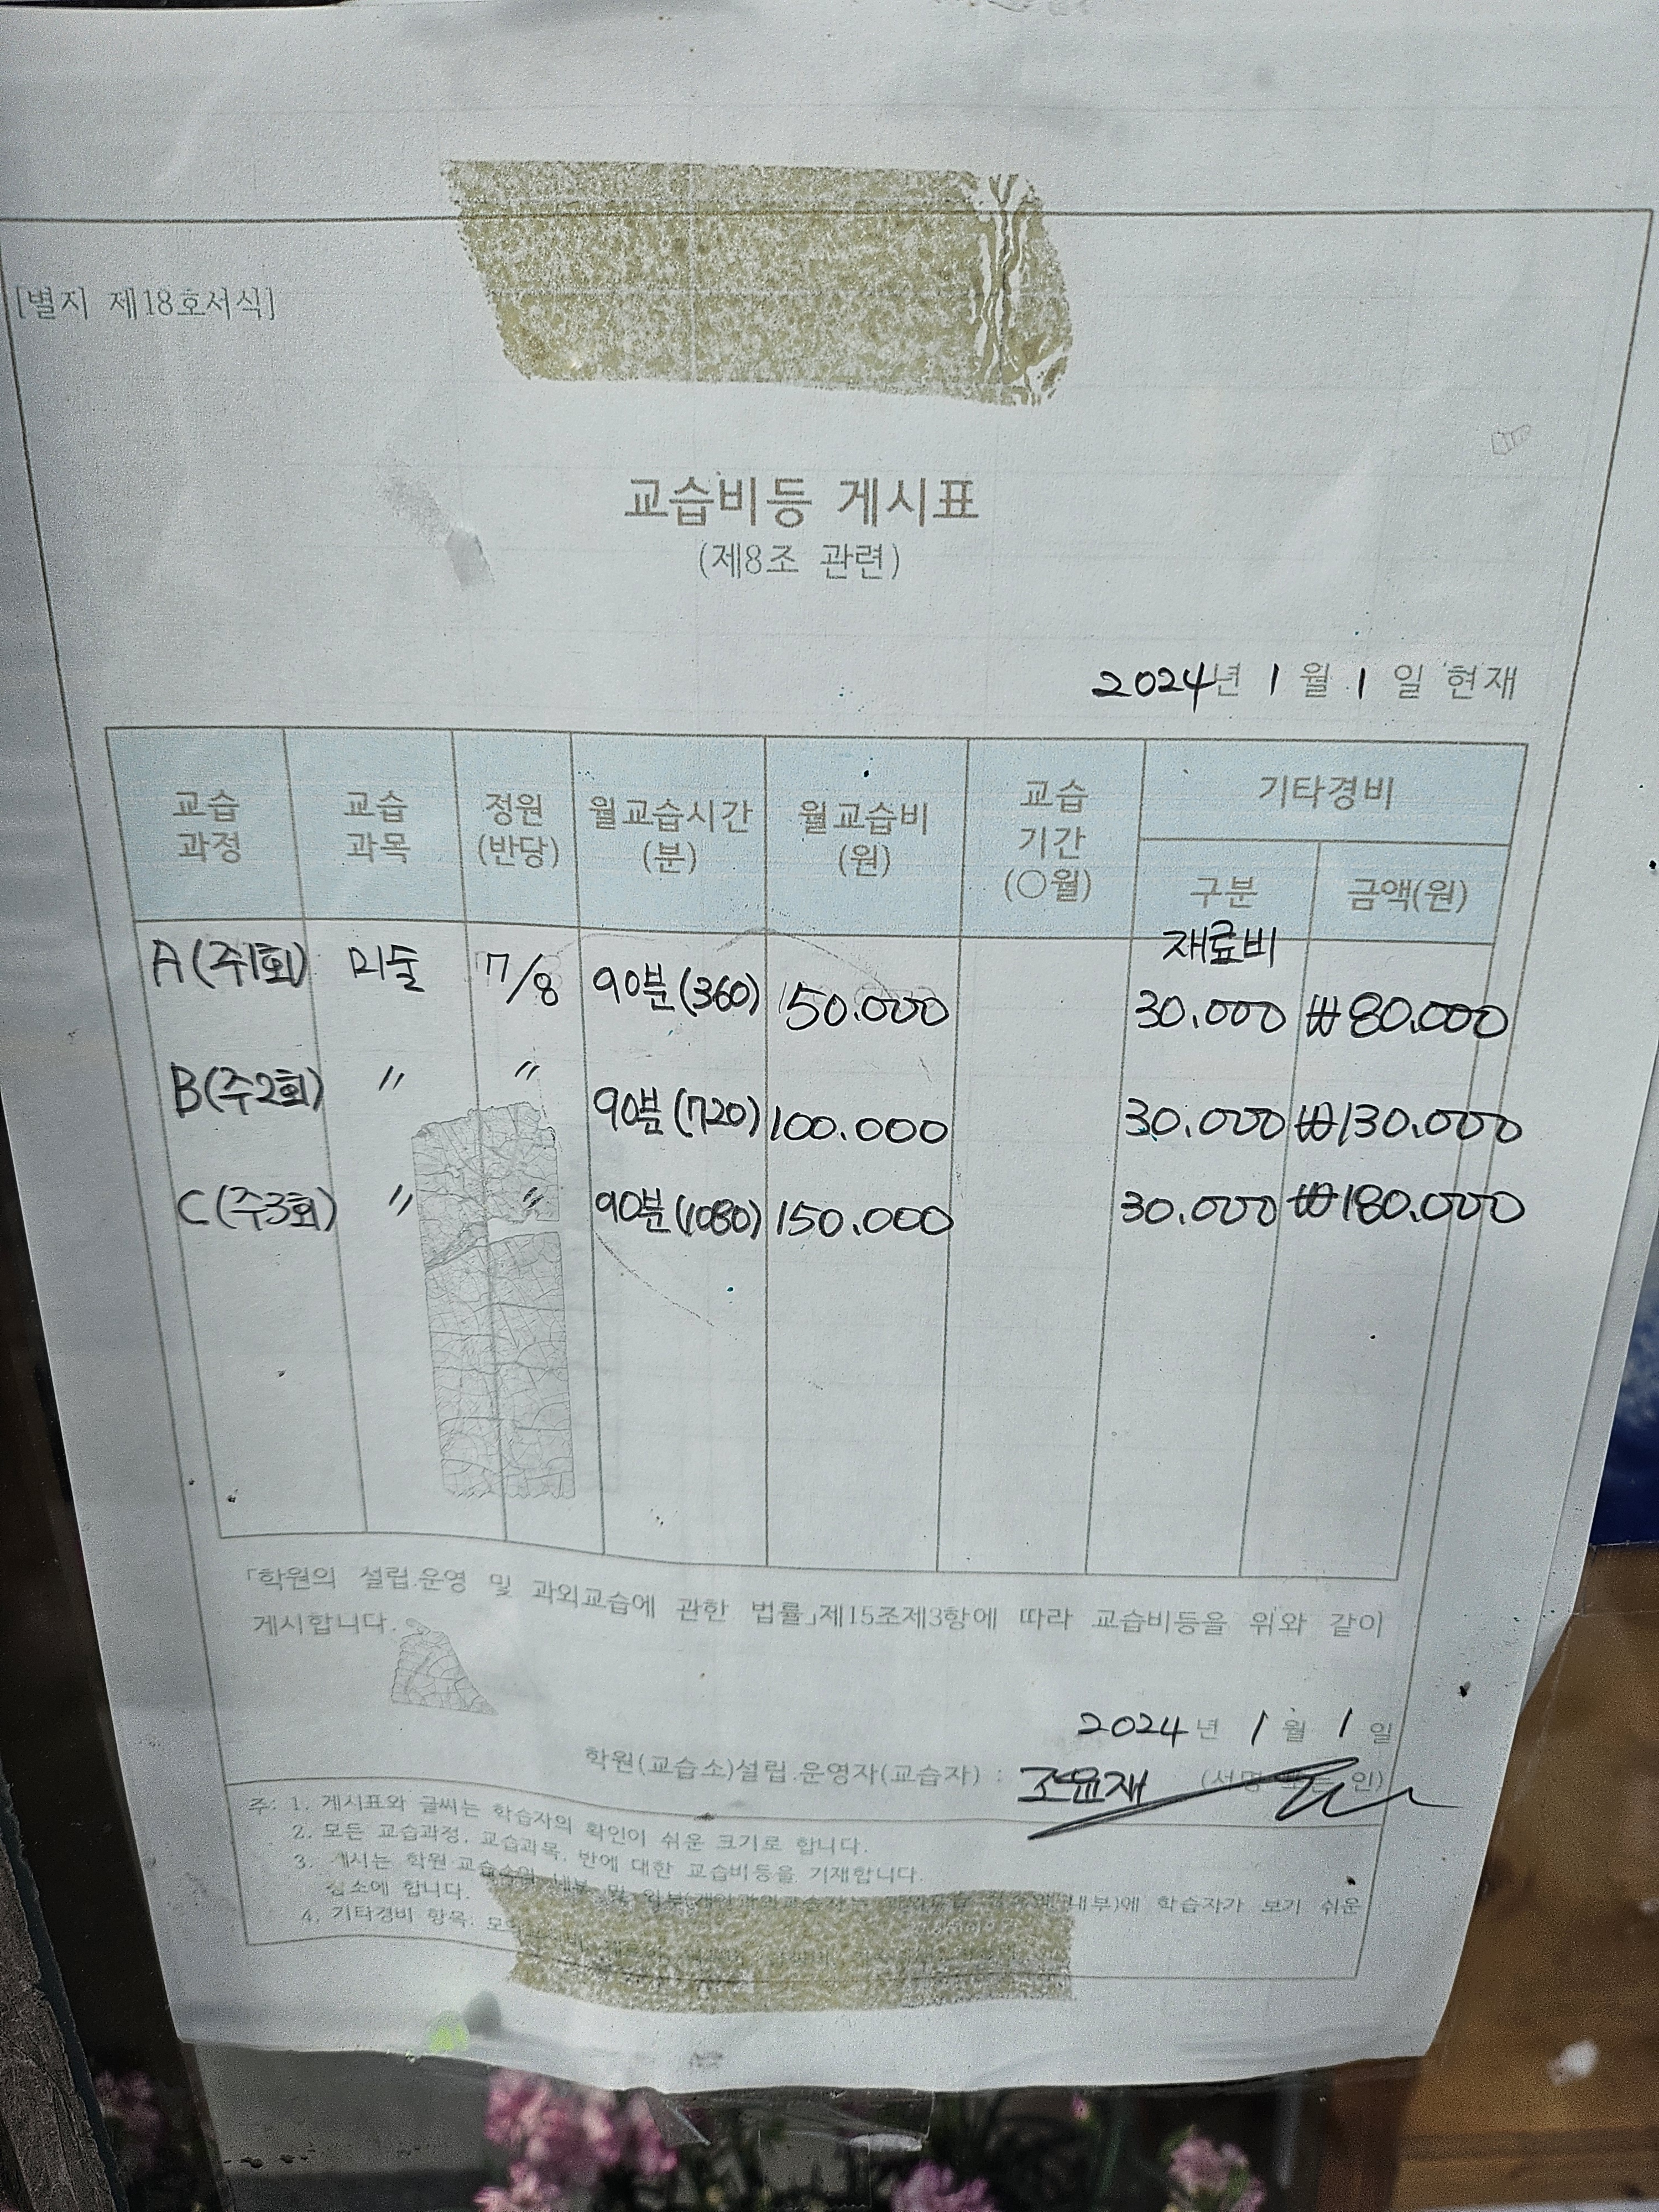 [별지 제18호서식]
교습비등 게시표
(제8조 관련)
2024년 1 월 1 일 현재
교습 과정 교습 과목 정원 (반당) 월교습시간 (분) 월교습비 (원) 교습 기간 (○월) 기타경비
구분 금액(원)
재료비
A(주1회) 미술 7/8 90분(360) 50.000 30.000 ₩80.000
B(주2회) 〃 〃 90분(720) 100.000 30.000 ₩130.000
C(주3회) 〃 〃 90분(1080) 150.000 30.000 ₩180.000
「학원의 설립.운영 및 과외교습에 관한 법률」제15조제3항에 따라 교습비등을 위와 같이
게시합니다.
2024년 1 월 1 일
학원(교습소)설립.운영자(교습자) : 조윤재 (서명 또는 인)
주: 1. 게시표와 글씨는 학습자의 확인이 쉬운 크기로 합니다.
2. 모든 교습과정, 교습과목, 반에 대한 교습비등을 기재합니다.
3. 게시는 학원·교습소의 내부 및 외부 내부)에 학습자가 보기 쉬운
장소에 합니다.
4. 기타경비 항목: